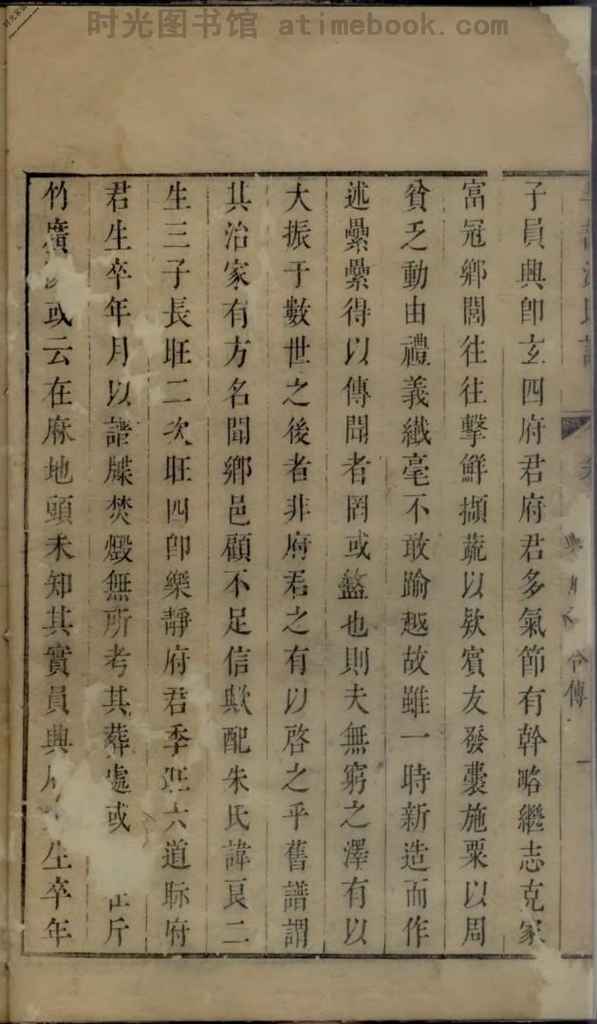 时光图书馆 atimebook.com
子員興即玄四府君府君多氣節有幹略繼志克家
富冠鄉閭往往擊鮮擷蔬以欵賓友發囊施粟以周
貧乏動由禮義纎毫不敢踰越故雖一時新造而作
述纍纍得以傳聞者罔或盭也則夫無窮之澤有以
大振于數世之後者非府君之有以啓之乎舊譜謂
其治家有方名聞鄉邑顧不足信歟配朱氏諱良二
生三子長旺二次旺四即樂靜府君季旺六道脉府
君生卒年月以譜牒焚燬無所考其葬處或 在斤
竹廣 或云在麻地頭未知其實員興 生卒年
合傳